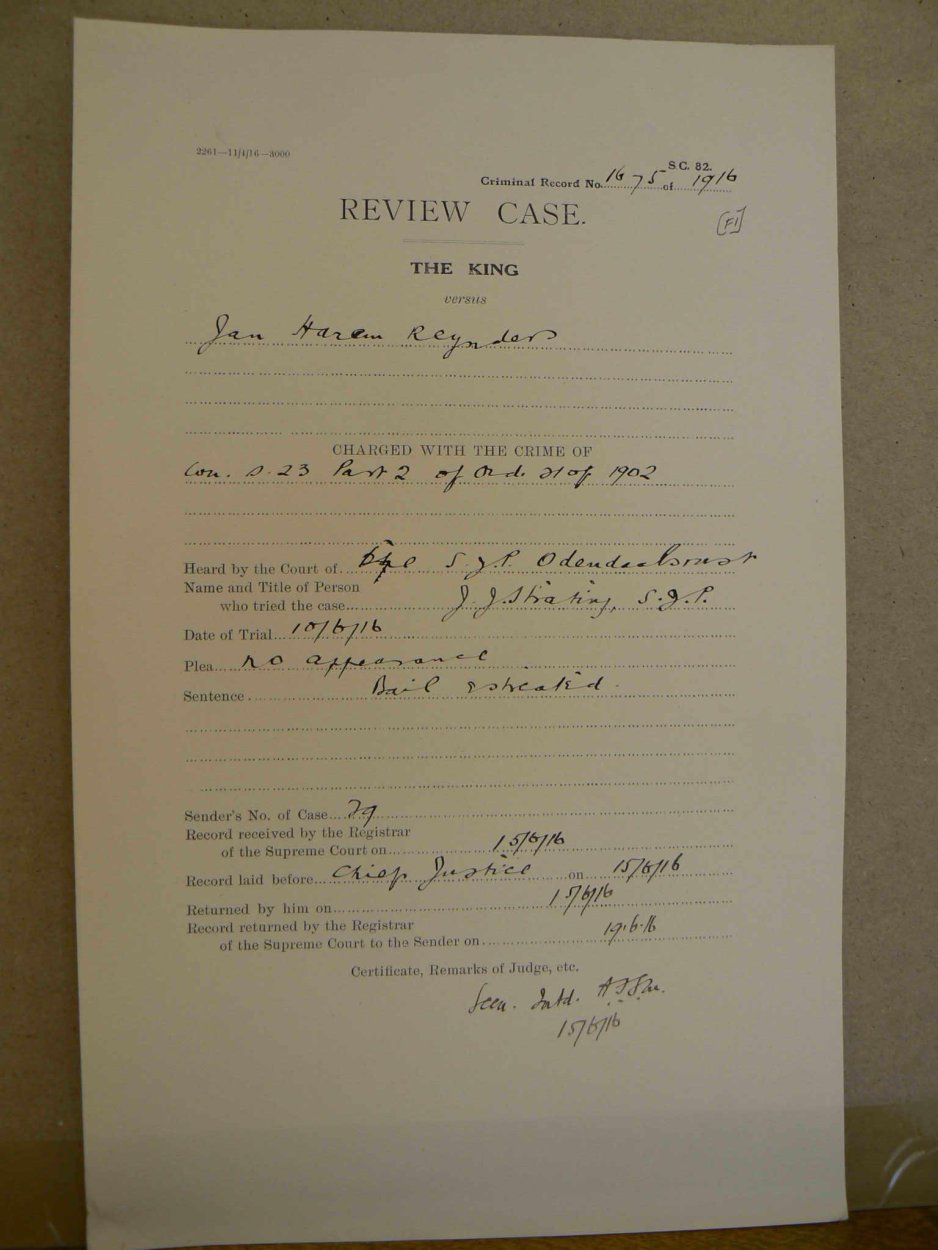 2261—11/4/16—3000
S.C. 82.
Criminal Record No. 1675 of 1916
REVIEW CASE.
[F1]
THE KING
versus
Jan Harem Reynders
CHARGED WITH THE CRIME OF
Con. S. 23 Part 2 of Ord. 21 of 1902
Heard by the Court of the S.J.P. Odendaalsrust
Name and Title of Person
who tried the case J. J. Strating, S.J.P.
Date of Trial 10/6/16
Plea no appearance
Sentence Bail estreated.
Sender's No. of Case 29
Record received by the Registrar
of the Supreme Court on 15/6/16
Record laid before Chief Justice on 15/6/16
Returned by him on 15/6/16
Record returned by the Registrar
of the Supreme Court to the Sender on 19.6.16
Certificate, Remarks of Judge, etc.
Seen. Intd.
15/6/16